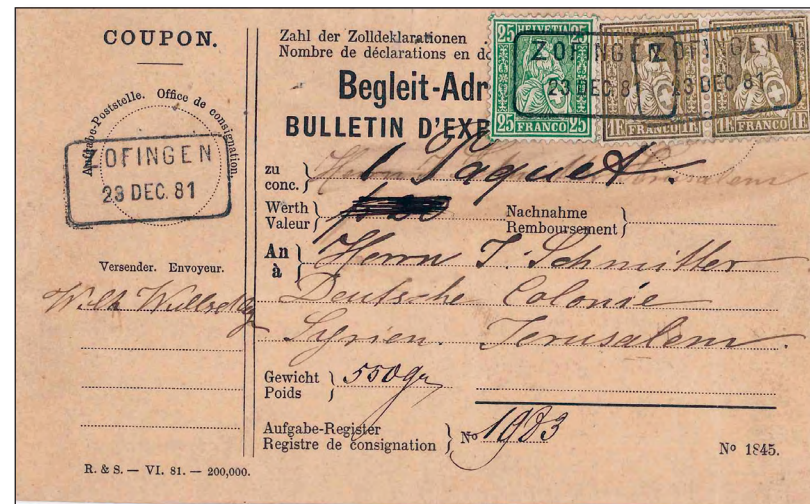 COUPON.
Aufgabe-Poststelle. Office de consignation.
ZOFINGEN
23 DEC. 81
Versender. Envoyeur.
R. & S. — VI. 81. — 200,000.
Zahl der Zolldeklarationen
Nombre de déclarations en do
Begleit-Adr
BULLETIN D'EXP
25 HELVETIA 25
25 FRANCO 25
HELVETIA
1F FRANCO 1F
HELVETIA
1F FRANCO 1F
ZOFINGEN
23 DEC. 81
ZOFINGEN
23 DEC. 81
zu
conc. } 1 Paquet.
Werth
Valeur }
Nachnahme
Remboursement }
An
à } Herrn J. Schmitter
Deutsche Colonie
Syrien. Jerusalem.
Gewicht
Poids } 550 gr
Aufgabe-Register
Registre de consignation } No 1983
No 1845.